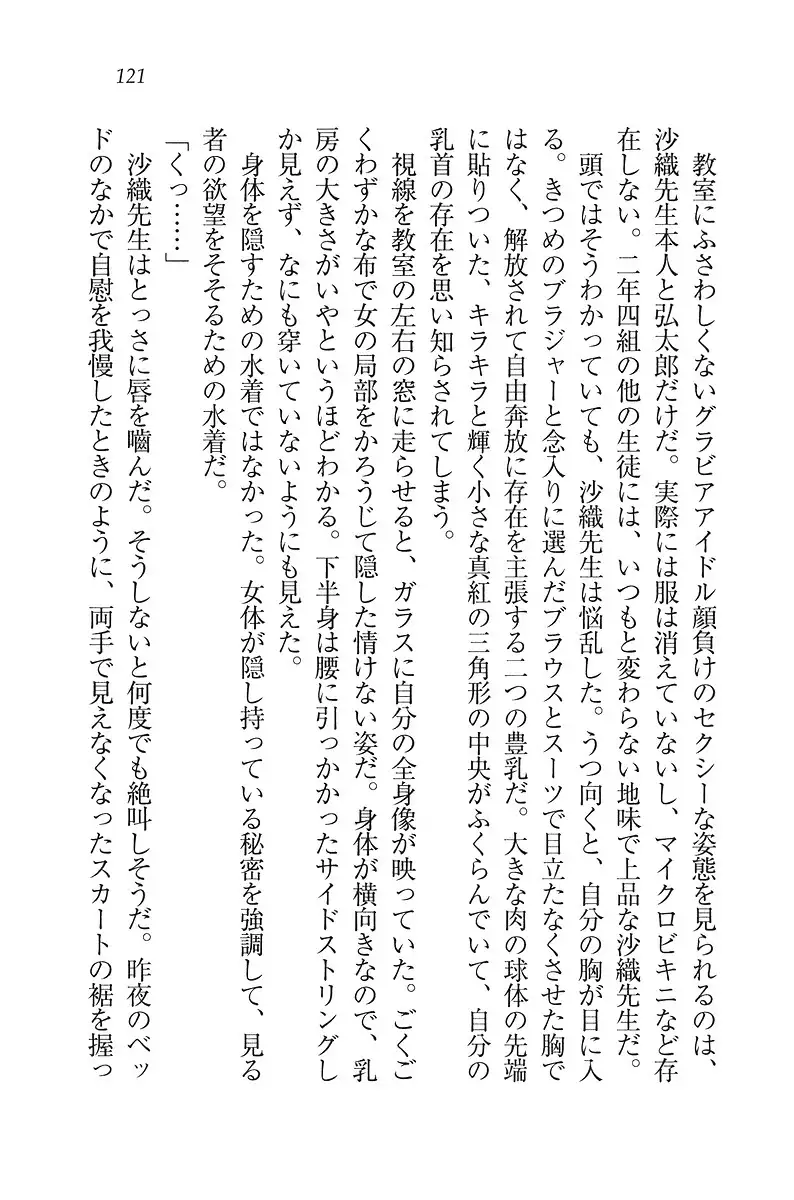 121
教室にふさわしくないグラビアアイドル顔負けのセクシーな姿態を見られるのは、
沙織先生本人と弘太郎だけだ。実際には服は消えていないし、マイクロビキニなど存
在しない。二年四組の他の生徒には、いつもと変わらない地味で上品な沙織先生だ。
頭ではそうわかっていても、沙織先生は悩乱した。うつ向くと、自分の胸が目に入
る。きつめのブラジャーと念入りに選んだブラウスとスーツで目立たなくさせた胸で
はなく、解放されて自由奔放に存在を主張する二つの豊乳だ。大きな肉の球体の先端
に貼りついた、キラキラと輝く小さな真紅の三角形の中央がふくらんでいて、自分の
乳首の存在を思い知らされてしまう。
視線を教室の左右の窓に走らせると、ガラスに自分の全身像が映っていた。ごくご
くわずかな布で女の局部をかろうじて隠した情けない姿だ。身体が横向きなので、乳
房の大きさがいやというほどわかる。下半身は腰に引っかかったサイドストリングし
か見えず、なにも穿いていないようにも見えた。
身体を隠すための水着ではなかった。女体が隠し持っている秘密を強調して、見る
者の欲望をそそるための水着だ。
「くっ……」
沙織先生はとっさに唇を噛んだ。そうしないと何度でも絶叫しそうだ。昨夜のベッ
ドのなかで自慰を我慢したときのように、両手で見えなくなったスカートの裾を握っ